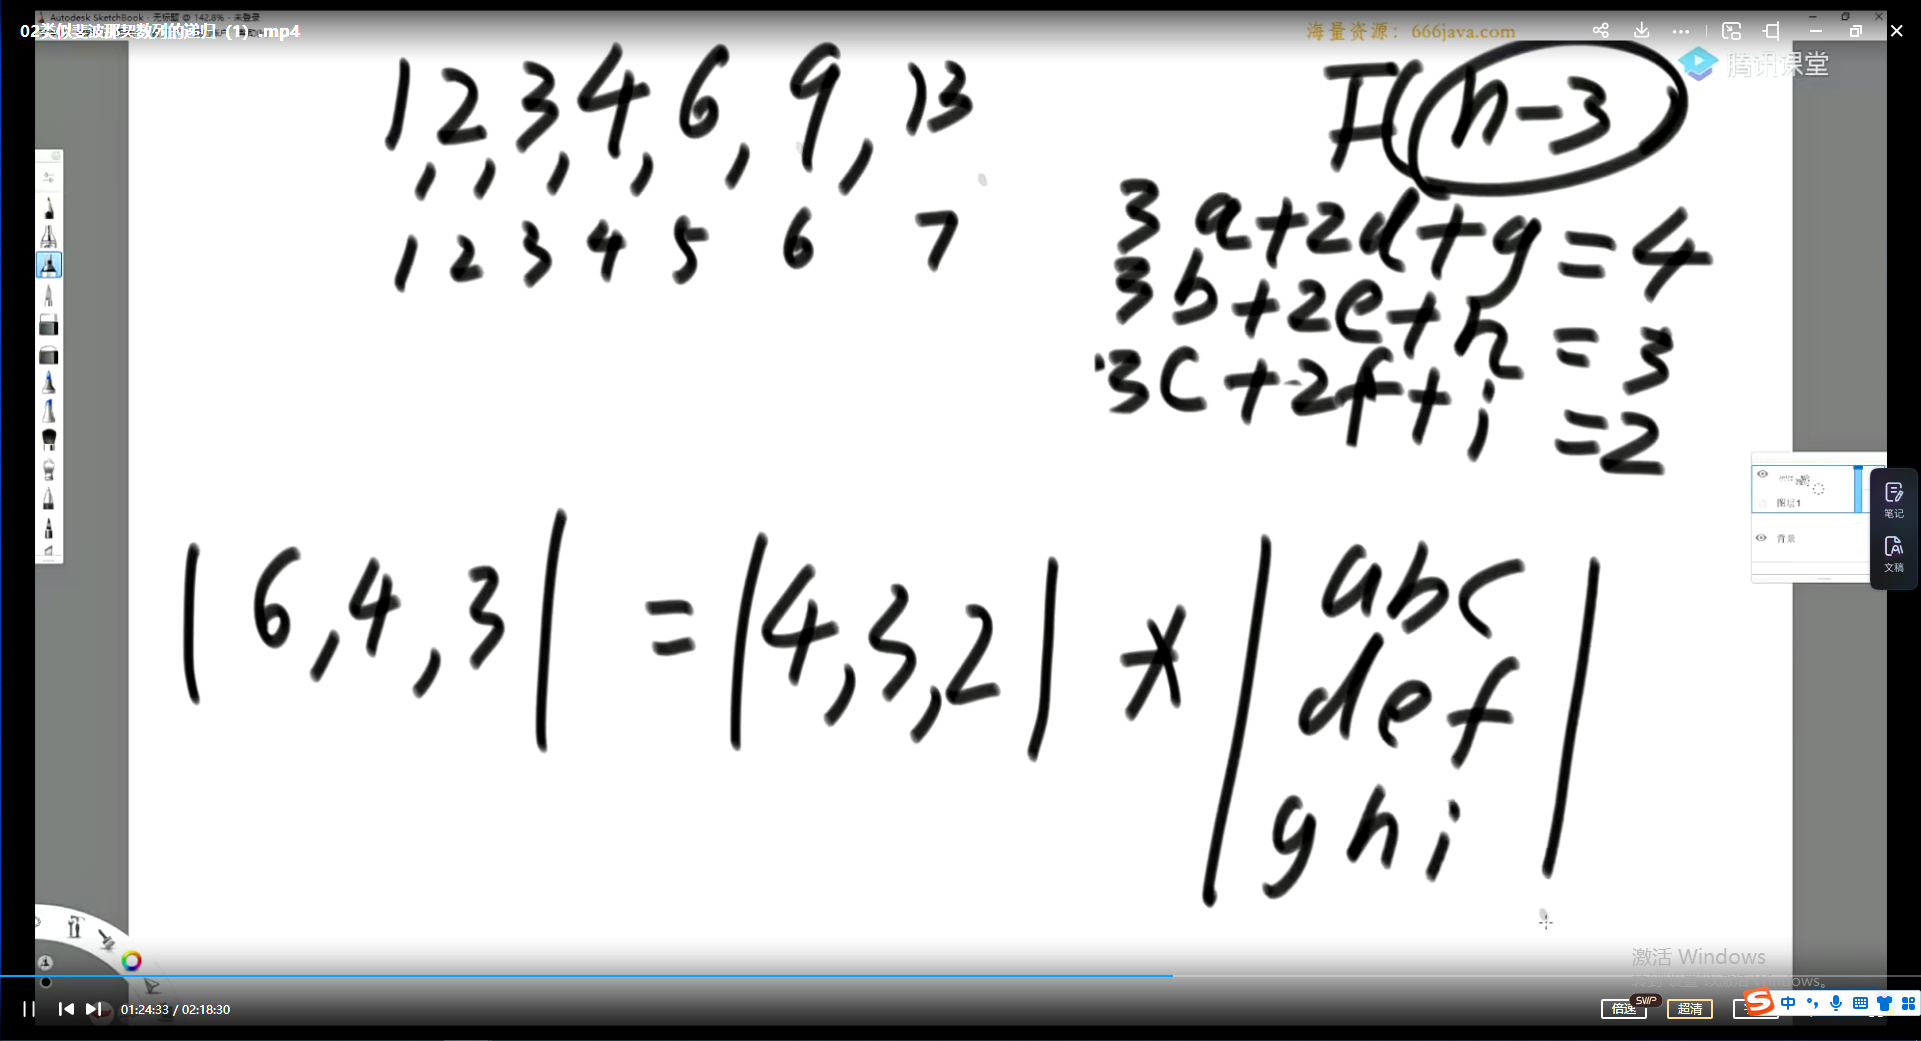 Autodesk SketchBook - 无标题 @ 142.8% - 未登录
02类似斐波那契数列的递归（1）.mp4
海量资源：666java.com
腾讯课堂
1,2,3,4,6,9,13
1 2 3 4 5 6 7
F(n-3)
3a+2d+g=4
3b+2e+h=3
3c+2f+i=2
|6,4,3| = |4,3,2| * |abc
def
ghi|
图层1
背景
笔记
文稿
激活 Windows
01:24:33 / 02:18:30
倍速
SVIP
超清
中